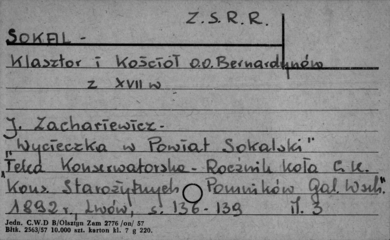 Z.S.R.R.
SOKAL -
Klasztor i Kościół O.O. Bernardynów
z XVII w
J. Zachariewicz -
"Wycieczka w Powiat Sokalski"
"Teka Konserwatorska - Rocznik Koła C.K.
Kons. Starożytnych Pomników Gal. Wsch."
1892 r., Lwów, s. 136-139 il. 3
Jedn. C.W.D B/Olsztyn Zam 2776 /on/ 57
Bltk. 2563/57 10.000 szt. karton kl. 7 g 220.